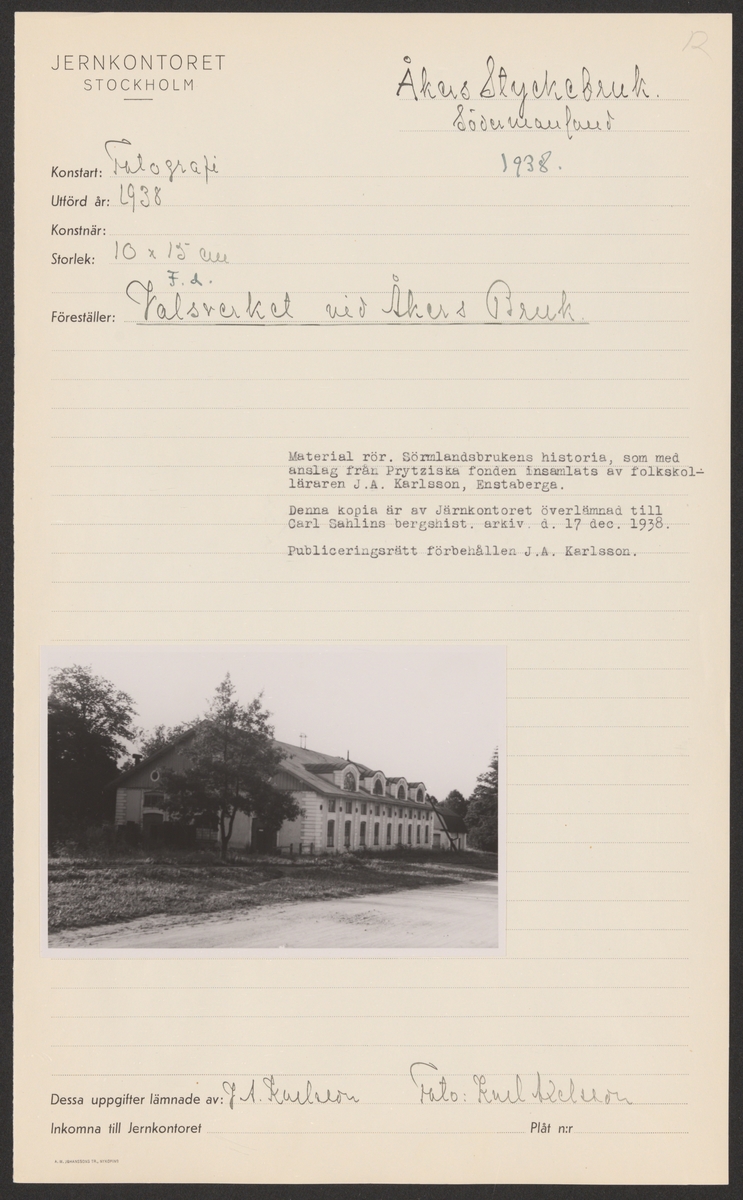 12
JERNKONTORET
STOCKHOLM
Åkers Styckebruk.
Södermanland
1938.
Konstart: Fotografi
Utförd år: 1938
Konstnär:
Storlek: 10 x 15 cm
F.d.
Föreställer: Valsverket vid Åkers Bruk.
Material rör. Sörmlandsbrukens historia, som med
anslag från Prytziska fonden insamlats av folkskol-
läraren J.A. Karlsson, Enstaberga.
Denna kopia är av Järnkontoret överlämnad till
Carl Sahlins bergshist. arkiv d. 17 dec. 1938.
Publiceringsrätt förbehållen J.A. Karlsson.
Dessa uppgifter lämnade av: J A. Karlsson Foto: Karl Axelsson
Inkomna till Jernkontoret Plåt n:r